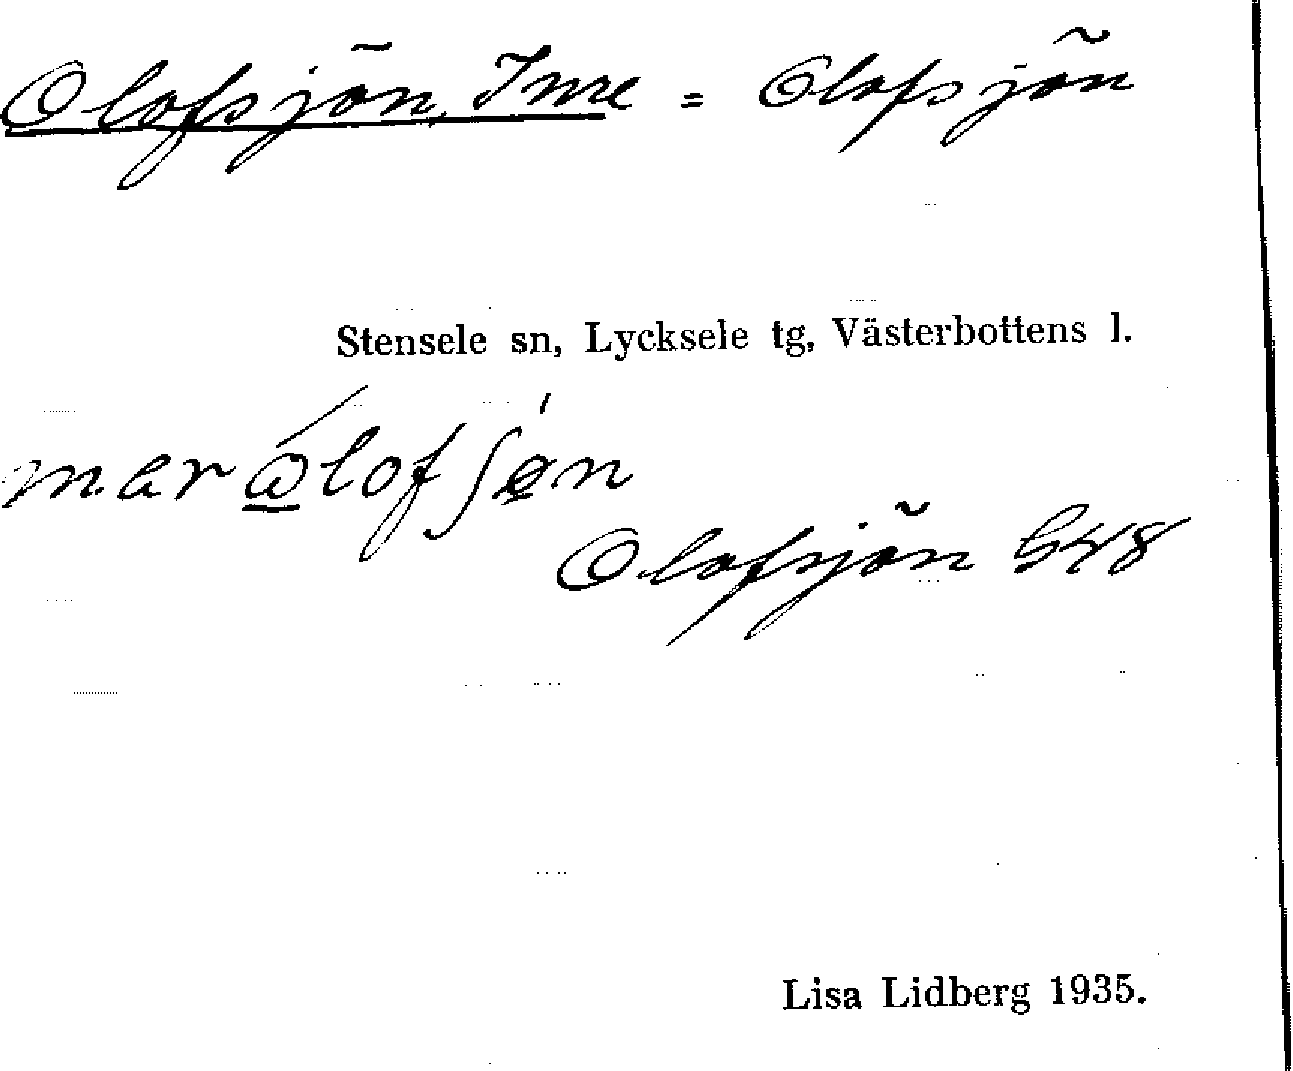 Olofsjön, Inre = Olofsjön
Stensele sn, Lycksele tg, Västerbottens l.
Olofsjön
Lisa Lidberg 1935.